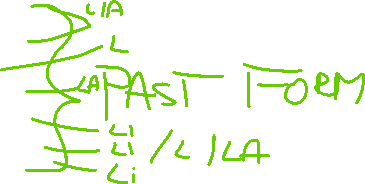 LIA
L
LA PAST FORM
LI
LI / LILA
Li